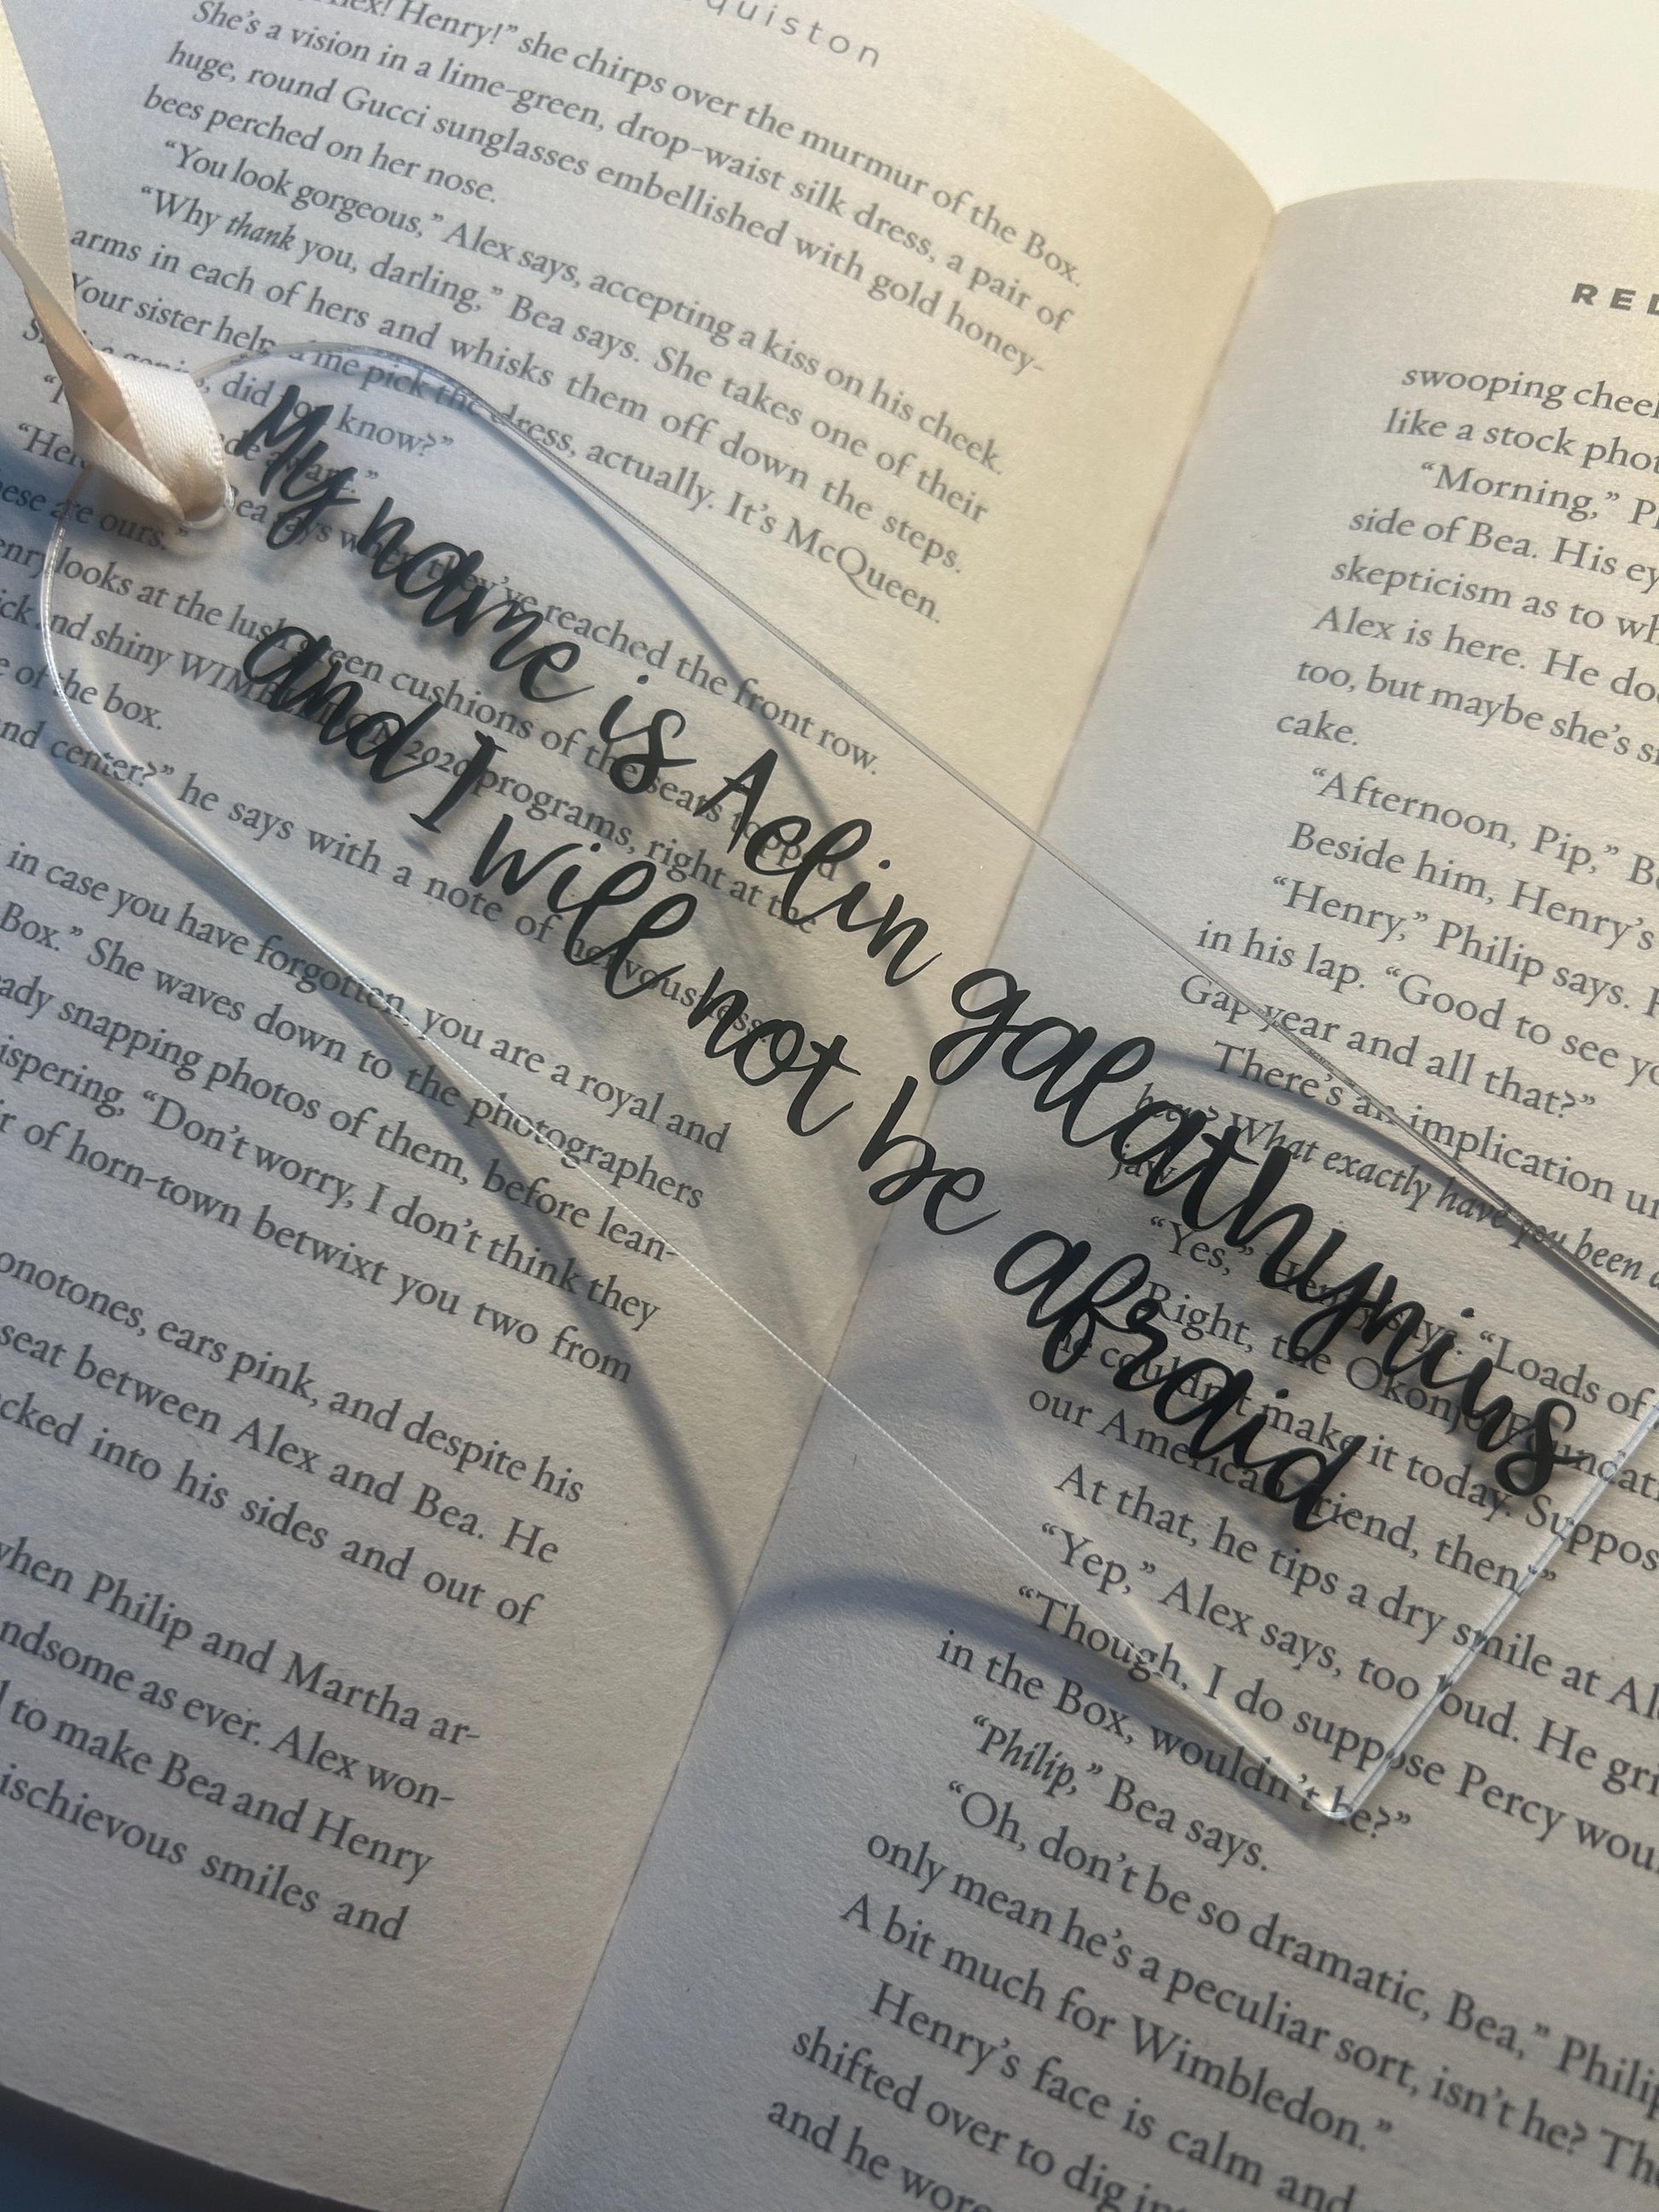 quiston
Henry!” she chirps over the murmur of the Box.
She’s a vision in a lime-green, drop-waist silk dress, a pair of
huge, round Gucci sunglasses embellished with gold honey-
bees perched on her nose.
“You look gorgeous,” Alex says, accepting a kiss on his cheek.
“Why thank you, darling,” Bea says. She takes one of their
arms in each of hers and whisks them off down the steps.
“Your sister helped me pick the dress, actually. It’s McQueen.
did you know?”
they’ve reached the front row.
looks at the lush green cushions of the seats topped
and shiny WIMBLEDON 2020 programs, right at the
of the box.
and center?” he says with a note of nervousness.
in case you have forgotten, you are a royal and
Box.” She waves down to the photographers
snapping photos of them, before lean-
“Don’t worry, I don’t think they
of horn-town betwixt you two from
ears pink, and despite his
seat between Alex and Bea. He
into his sides and out of
when Philip and Martha ar-
as ever. Alex won-
to make Bea and Henry
smiles and
My name is Aelin galathynius
and I will not be afraid
swooping
like a stock
“Morning,”
side of Bea. His
skepticism as to
Alex is here. He
too, but maybe she’s
cake.
“Afternoon, Pip,”
Beside him, Henry’s
“Henry,” Philip says.
in his lap. “Good to see
Gap year and all that?”
There’s an implication
here? What exactly have you been
jaw
“Yes,” Henry says. “Loads of
“Right, the Okonjo
he couldn’t make it today.
our American friend, then?”
At that, he tips a dry smile at
“Yep,” Alex says, too loud. He
“Though, I do suppose Percy
in the Box, wouldn’t he?”
“Philip,” Bea says.
“Oh, don’t be so dramatic, Bea,”
only mean he’s a peculiar sort, isn’t he?
A bit much for Wimbledon.”
Henry’s face is calm and
shifted over to dig
and he